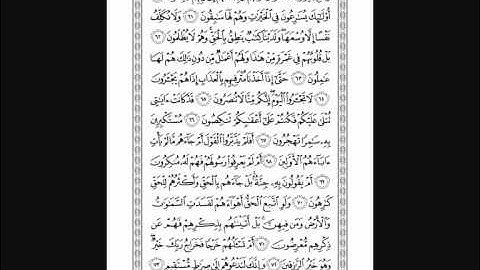 أُوْلَـٰٓئِكَ يُسَـٰرِعُونَ فِى ٱلْخَيْرَٰتِ وَهُمْ لَهَا سَـٰبِقُونَ ٦١ وَلَا نُكَلِّفُ
نَفْسًا إِلَّا وُسْعَهَا وَلَدَيْنَا كِتَـٰبٌ يَنطِقُ بِٱلْحَقِّ وَهُمْ لَا يُظْلَمُونَ ٦٢
بَلْ قُلُوبُهُمْ فِى غَمْرَةٍ مِّنْ هَـٰذَا وَلَهُمْ أَعْمَـٰلٌ مِّن دُونِ ذَٰلِكَ هُمْ لَهَا
عَـٰمِلُونَ ٦٣ حَتَّىٰٓ إِذَآ أَخَذْنَا مُتْرَفِيهِم بِٱلْعَذَابِ إِذَا هُمْ يَجْـَٔرُونَ
٦٤ لَا تَجْـَٔرُوا۟ ٱلْيَوْمَ إِنَّكُم مِّنَّا لَا تُنصَرُونَ ٦٥ قَدْ كَانَتْ ءَايَـٰتِى
تُتْلَىٰ عَلَيْكُمْ فَكُنتُمْ عَلَىٰٓ أَعْقَـٰبِكُمْ تَنكِصُونَ ٦٦ مُسْتَكْبِرِينَ
بِهِۦ سَـٰمِرًا تَهْجُرُونَ ٦٧ أَفَلَمْ يَدَّبَّرُوا۟ ٱلْقَوْلَ أَمْ جَآءَهُم مَّا لَمْ يَأْتِ
ءَابَآءَهُمُ ٱلْأَوَّلِينَ ٦٨ أَمْ لَمْ يَعْرِفُوا۟ رَسُولَهُمْ فَهُمْ لَهُۥ مُنكِرُونَ
٦٩ أَمْ يَقُولُونَ بِهِۦ جِنَّةٌۢ بَلْ جَآءَهُم بِٱلْحَقِّ وَأَكْثَرُهُمْ لِلْحَقِّ
كَـٰرِهُونَ ٧٠ وَلَوِ ٱتَّبَعَ ٱلْحَقُّ أَهْوَآءَهُمْ لَفَسَدَتِ ٱلسَّمَـٰوَٰتُ
وَٱلْأَرْضُ وَمَن فِيهِنَّ بَلْ أَتَيْنَـٰهُم بِذِكْرِهِمْ فَهُمْ عَن
ذِكْرِهِم مُّعْرِضُونَ ٧١ أَمْ تَسْـَٔلُهُمْ خَرْجًا فَخَرَاجُ رَبِّكَ خَيْرٌ
وَهُوَ خَيْرُ ٱلرَّٰزِقِينَ ٧٢ وَإِنَّكَ لَتَدْعُوهُمْ إِلَىٰ صِرَٰطٍ مُّسْتَقِيمٍ ٧٣